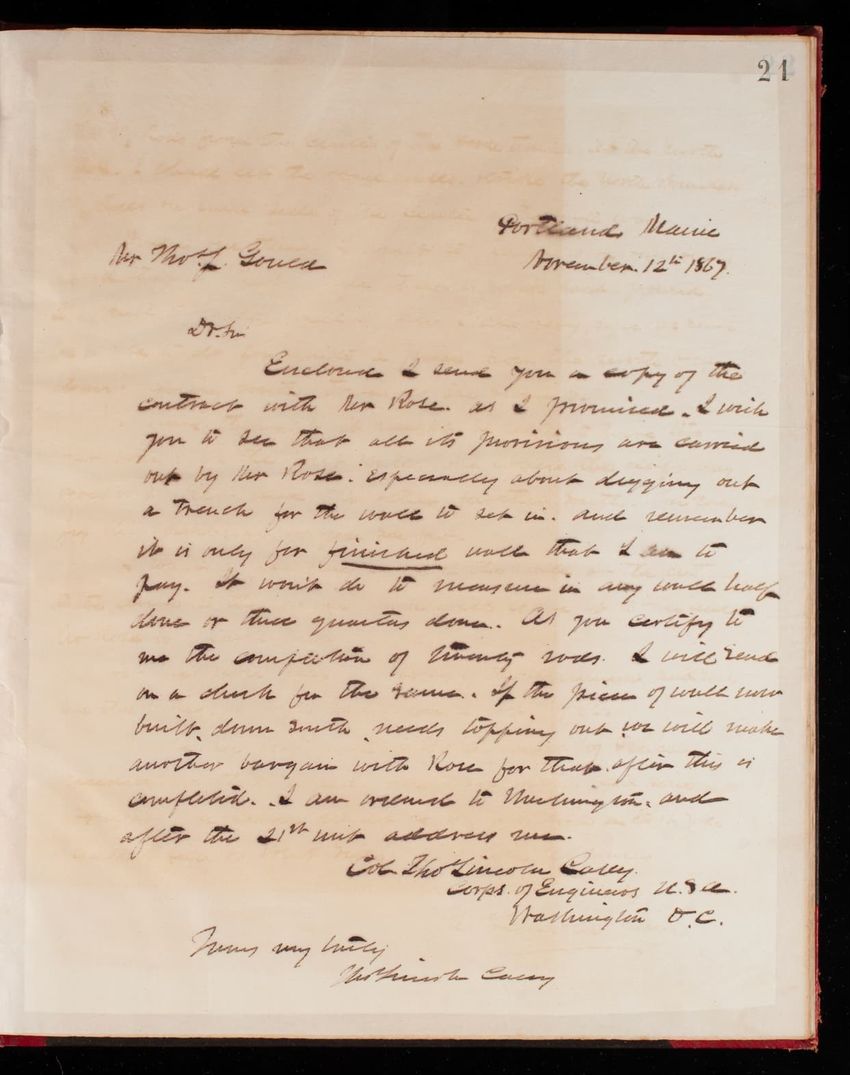 21
Portland Maine
November. 12th 1867.
Mr Thos J. Gould
Dr. Sir
Enclosed I send you a copy of the
contract with Mr Rose. as I promised. I wish
you to see that all its provisions are carried
out by Mr Rose: especially about digging out
a trench for the wall to set in. and remember
it is only for finished wall that I am to
pay. It won't do to measure in any wall half
done or three quarters done. As you certify to
me the completion of twenty rods. I will send
on a check for the same. If the piece of wall now
built, down south, needs topping out we will make
another bargain with Rose for that. after this is
completed. I am ordered to Washington. and
after the 21st inst address me.
Col. Thos Lincoln Casey.
Corps. of Engineers U.S.A.
Washington D.C.
Yours very truly
Thos Lincoln Casey